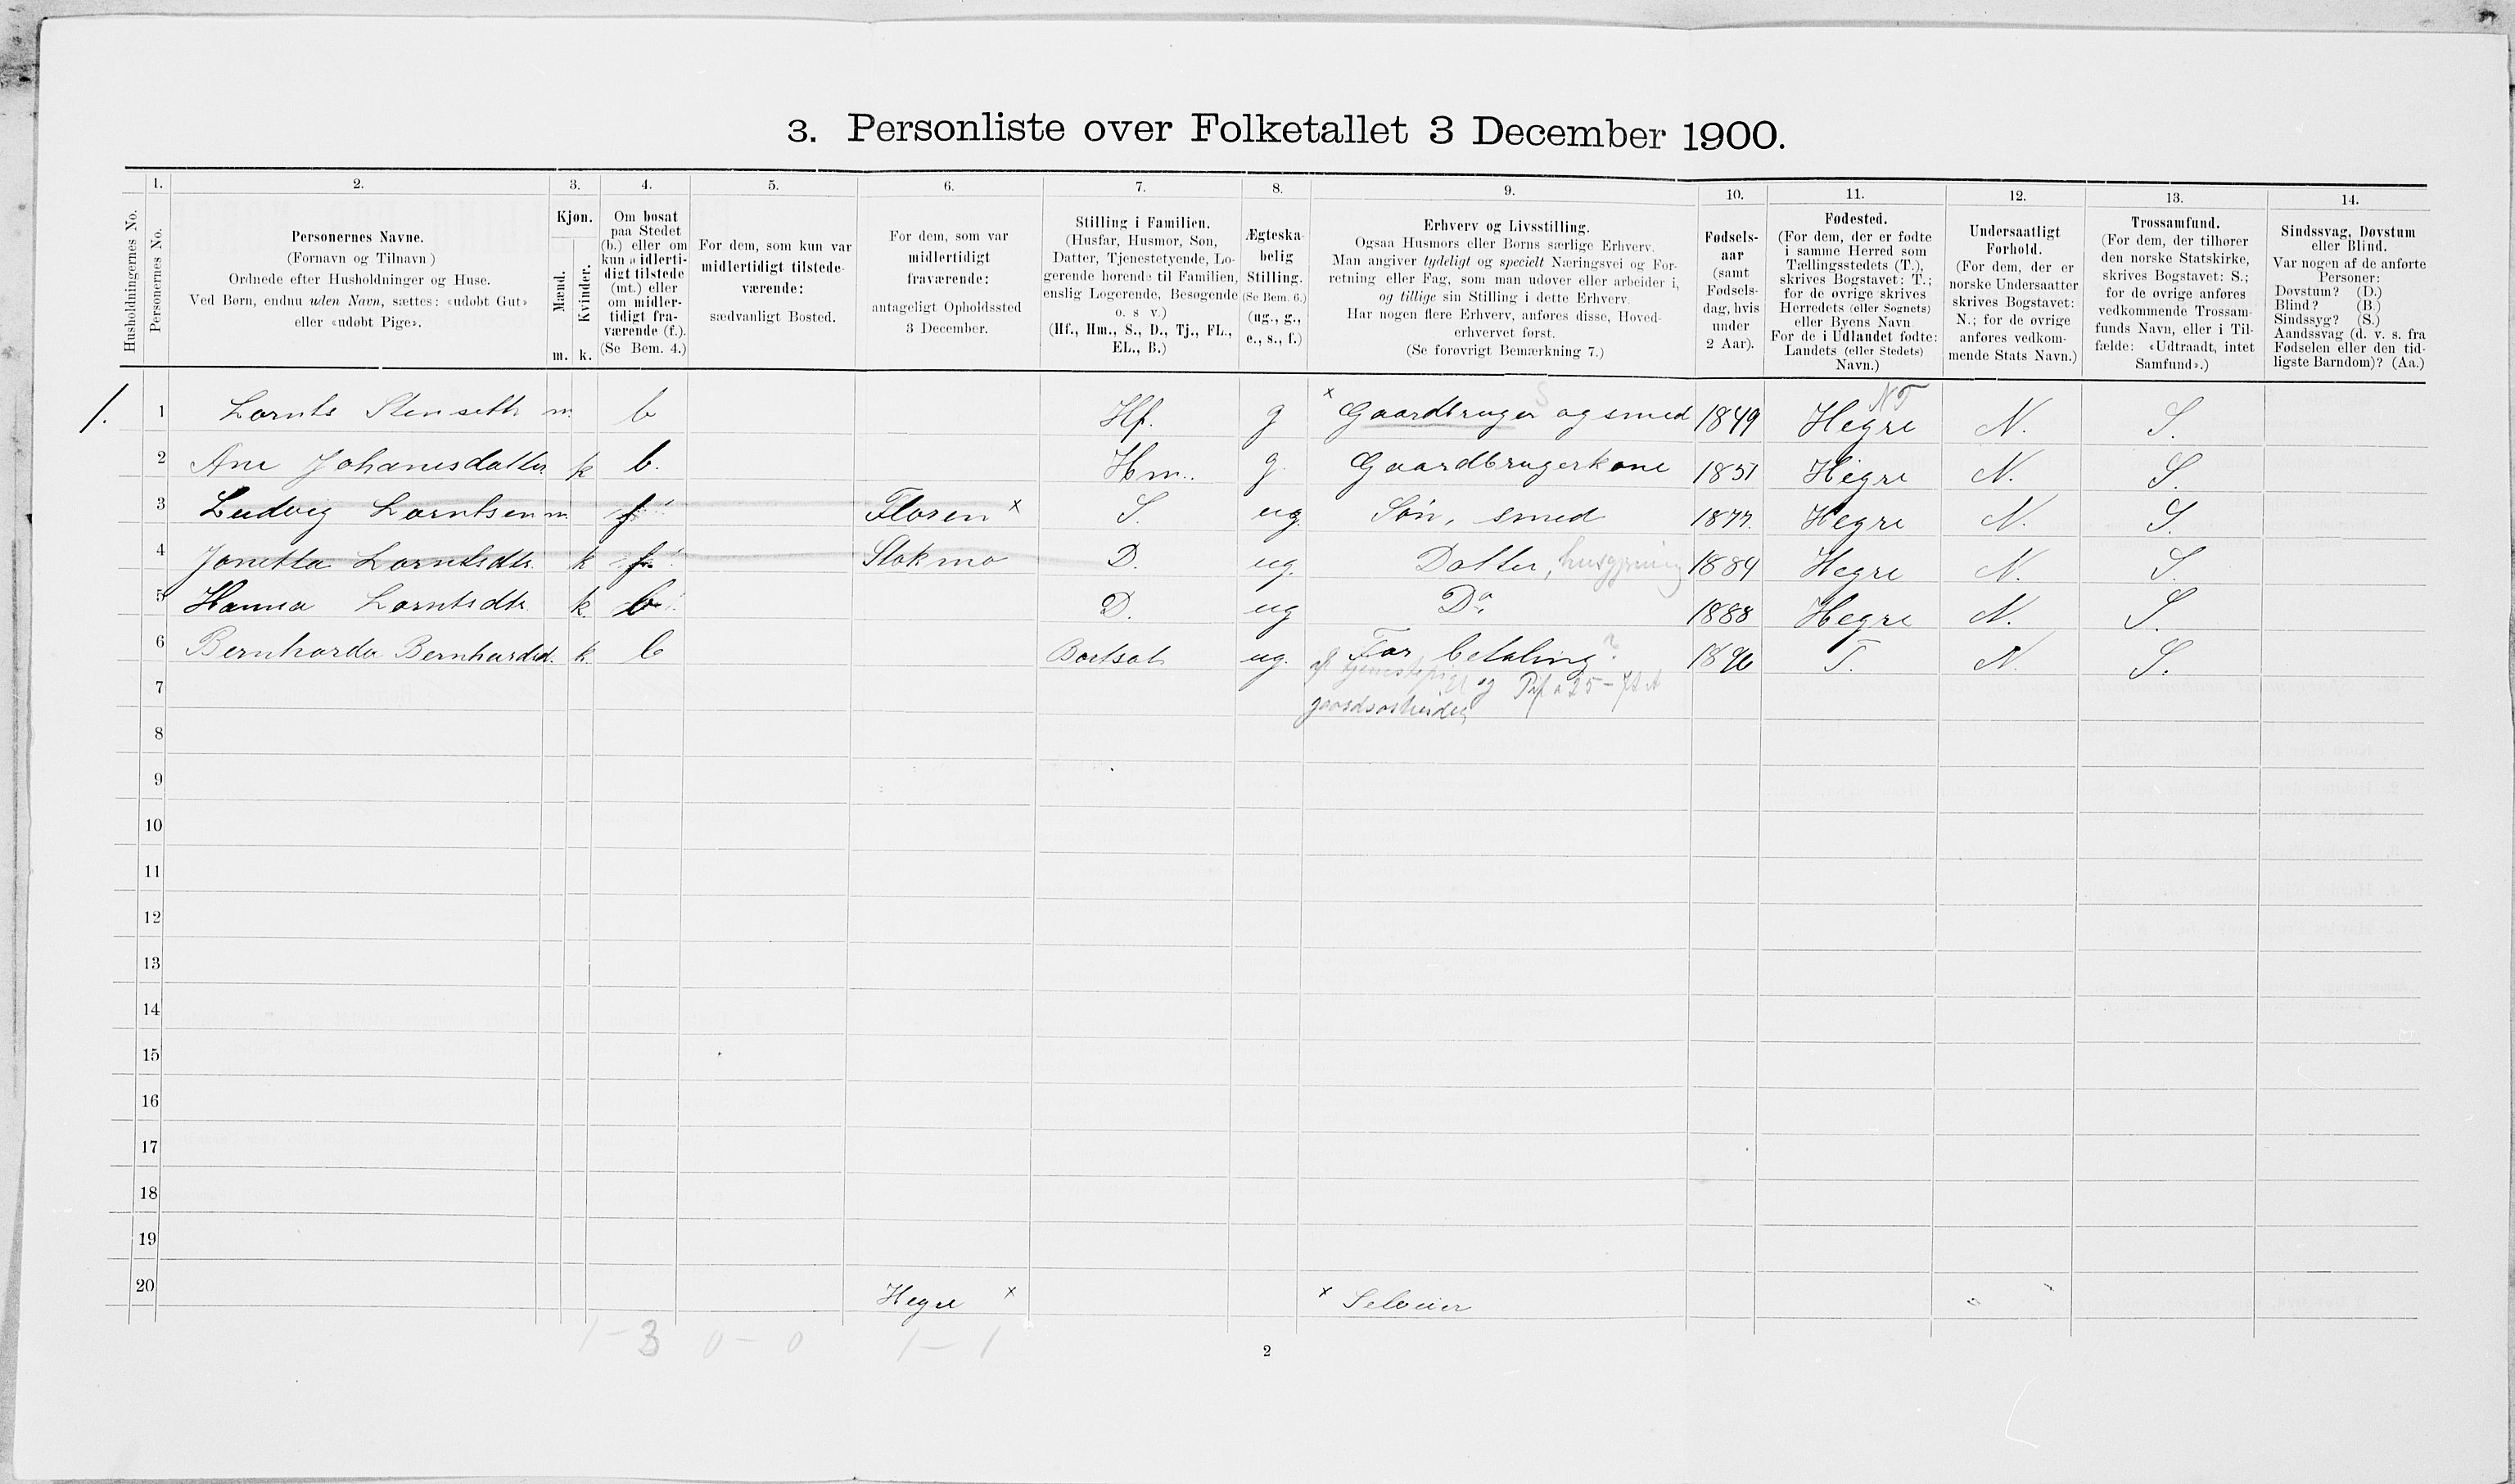 3. Personliste over Folketallet 3 December 1900.
Husholdningernes No.
1. Personernes No.
2. Personernes Navne.
(Fornavn og Tilnavn)
Ordnede efter Husholdninger og Huse.
Ved Børn, endnu uden Navn, sættes: «udøbt Gut»
eller «udøbt Pige».
3. Kjøn.
Mænd. m.
Kvinder. k.
4. Om bosat
paa Stedet
(b.) eller om
kun midlerti-
digt tilstede
(mt.) eller
om midler-
tidigt fra-
værende (f.).
(Se Bem. 4.)
5. For dem, som kun var
midlertidigt tilstede-
værende:
sædvanligt Bosted.
6. For dem, som var
midlertidigt
fraværende:
antageligt Opholdssted
3 December.
7. Stilling i Familien.
(Husfar, Husmor, Søn,
Datter, Tjenestetyende, Lo-
gerende hørende til Familien,
enslig Logerende, Besøgende
o. s v.)
(Hf., Hm., S., D., Tj., FL.,
EL., B.)
8. Ægteska-
belig
Stilling.
(Se Bem. 6.)
(ug., g.,
e., s., f.)
9. Erhverv og Livsstilling.
Ogsaa Husmors eller Børns særlige Erhverv.
Man angiver tydeligt og specielt Næringsvei og For-
retning eller Fag, som man udøver eller arbeider i,
og tillige sin Stilling i dette Erhverv.
Har nogen flere Erhverv, anføres disse, Hoved-
erhvervet først.
(Se forøvrigt Bemærkning 7.)
10. Fødsels-
aar
(samt
Fødsels-
dag, hvis
under
2 Aar).
11. Fødested.
(For dem, der er fødte
i samme Herred som
Tællingsstedets (T.),
skrives Bogstavet: T.;
for de øvrige skrives
Herredets (eller Sognets)
eller Byens Navn
For de i Udlandet fødte:
Landets (eller Stedets)
Navn.)
12. Undersaatligt
Forhold.
(For dem, der er
norske Undersaatter
skrives Bogstavet:
N.; for de øvrige
anføres vedkom-
mende Stats Navn.)
13. Trossamfund.
(For dem, der tilhører
den norske Statskirke,
skrives Bogstavet: S.;
for de øvrige anføres
vedkommende Trossam-
funds Navn, eller i Til-
fælde: «Udtraadt, intet
Samfund».)
14. Sindssvag, Døvstum
eller Blind.
Var nogen af de anførte
Personer:
Døvstum? (D.)
Blind? (B.)
Sindssyg? (S.)
Aandssvag (d. v. s. fra
Fødselen eller den tid-
ligste Barndom)? (Aa.)
NT
1. 1 Lornts Stenseth m. b Hf. g x Gaardbruger og smed 1849 Hegre N. S.
2 Ane Johanesdatter k b. Hm. g. Gaardbrugerkone 1851 Hegre N. S.
3 Ludvig Lorntsen m. f Floren x S. ug. Søn, smed 1877. Hegre N. S.
4 Jonetta Lorntsdtr. k f. Stokmo D. ug. Datter, husgjerning 1884 Hegre N. S.
5 Hanna Lorntsdtr. k. b D. ug Do. 1888 Hegre N. S.
6 Bernharda Bernhardsd. k. b Bortsat ug. For betaling ? 1896 T. N. S.
7 af tjenestepige og
gaardsarbeider
8
9
10
11
12
13
14
15
16
17
18
19
20 Hegre x x Seleier
1 - 3 0 - 0 1 - 1
2